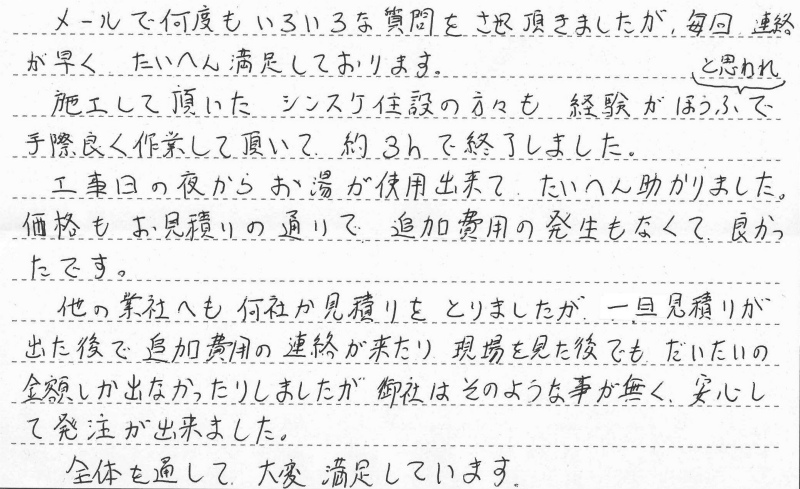 メールで何度もいろいろな質問をさせ頂きましたが、毎回 連絡
が早く たいへん満足しております。
と思われ
施工して頂いた シンスケ住設の方々も 経験がほうふで
手際良く作業して頂いて 約3hで終了しました。
工事日の夜から お湯が使用出来て、たいへん助かりました。
価格も お見積りの通りで 追加費用の発生もなくて 良かっ
たです。
他の業社へも 何社か見積りを とりましたが 一旦見積りが
出た後で 追加費用の連絡が来たり 現場を見た後でも だいたいの
金額しか出なかったりしましたが 御社はそのような事が無く、安心し
て発注が出来ました。
全体を通して 大変 満足しています。